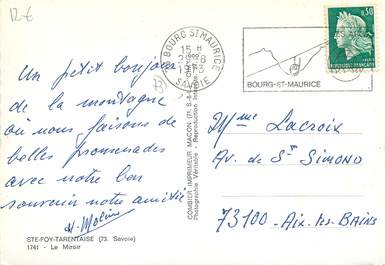 12€
BOURG ST MAURICE
15 H
1973
SAVOIE
BOURG-ST-MAURICE
0,30
Un petit bonjour
de la montagne
où nous faisons de
belles promenades
avec notre bon
souvenir notre amitié
H. Molin
Mme Lacroix
Av. de St Simond
73100 - Aix-les-Bains
COMBIER IMPRIMEUR MACON
STE-FOY-TARENTAISE (73. Savoie)
1741 - Le Miroir